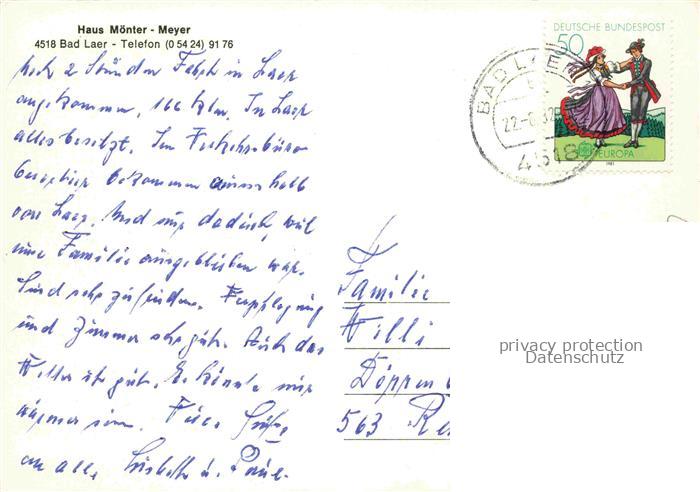 Haus Mönter - Meyer
4518 Bad Laer - Telefon (0 54 24) 91 76
DEUTSCHE BUNDESPOST
50
BAD LAER
22.-
4518
EUROPA
1981
Nach 2 Stunden Fahrt in Laer
angekommen, 166 klm. In Laer
alles besetzt. Im Verkehrsbüro
bekommen ausserhalb
von Laer. Und nur dadurch, weil
eine Familie ausgeblieben war.
Sind sehr zufrieden. Verpflegung
und Zimmer sehr gut. Auch das
Wetter ist gut. Es könnte nur
wärmer sein. Viele Grüße
an alle, Lisbeth u. Paul.
Familie
Willi
563 Re
privacy protection
Datenschutz